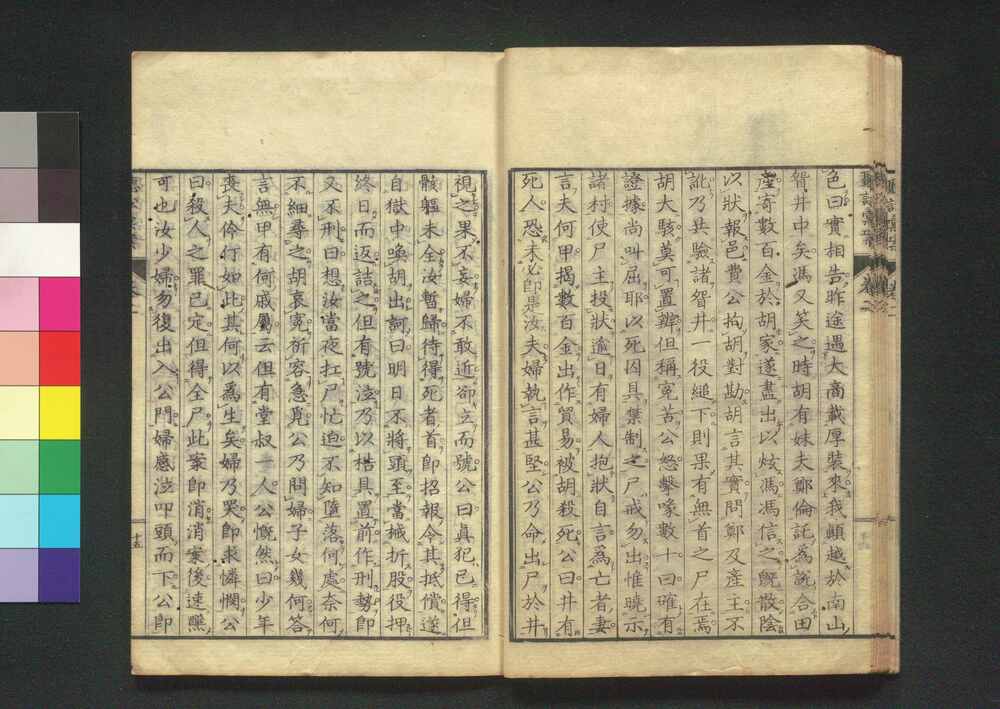 色曰實相告昨途遇大商載厚裝來我顛越於南山
眢井中矣馮又笑之時胡有妹夫鄭倫託為說合田
產寄數百金於胡家遂盡出以炫馮馮信之既散陰
以狀報邑費公拘胡對勘胡言其實問鄭及產主不
訛乃共驗諸眢井一役縋下則果有無首之尸在焉
胡大駭莫可置辨但稱冤苦公怒擊喙數十曰確有
證據尚叫屈耶以死囚具禁制之尸戒勿出惟曉示
諸村使尸主投狀逾日有婦人抱狀自言為亡者妻
言夫何甲揭數百金出作貿易被胡殺死公曰井有
死人恐未必即是汝夫婦執言甚堅公乃命出尸於井
視之果不妄婦不敢近卻立而號公曰真犯已得但
骸軀未全汝暫歸待得死者首即招報令其抵償遂
自獄中喚胡出訶曰明日不將頭至當械折股役押
終日而返詰之但有號泣乃以梏具置前作刑勢即
又不刑曰想汝當夜扛尸忙迫不知墮落何處奈何
不細尋之胡哀冤祈容急覓公乃問婦子女幾何答
言無甲有何戚屬云但有堂叔一人公慨然曰少年
喪夫伶仃如此其何以為生矣婦乃哭即求憐憫公
曰殺人之罪已定但得全尸此案即消消案後速醮
可也汝少婦勿復出入公門婦感泣叩頭而下公即
十五